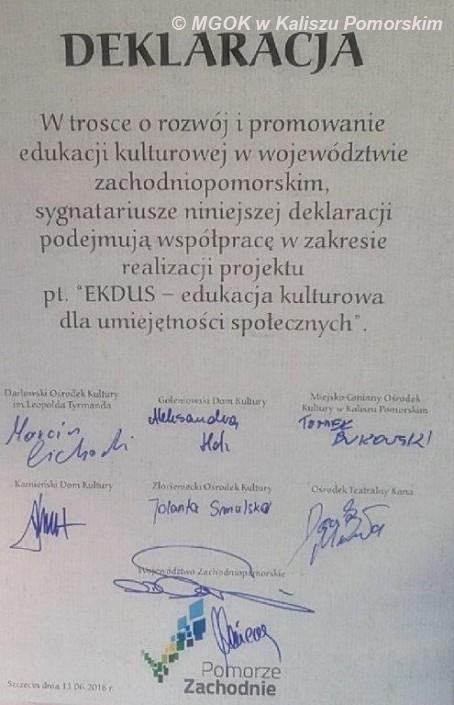 © MGOK w Kaliszu Pomorskim
DEKLARACJA
W trosce o rozwój i promowanie
edukacji kulturowej w województwie
zachodniopomorskim,
sygnatariusze niniejszej deklaracji
podejmują współpracę w zakresie
realizacji projektu
pt. "EKDUS – edukacja kulturowa
dla umiejętności społecznych".
Darłowski Ośrodek Kultury
im. Leopolda Tyrmanda
Goleniowski Dom Kultury
Miejsko-Gminny Ośrodek
Kultury w Kaliszu Pomorskim
Marcin
Cichocki
Aleksandra
TOMEK
BUKOWSKI
Kamieński Dom Kultury
Złocieniecki Ośrodek Kultury
Ośrodek Teatralny Kana
Jolanta Smulska
Województwo Zachodniopomorskie
Pomorze
Zachodnie
Szczecin dnia 13.06.2016 r.